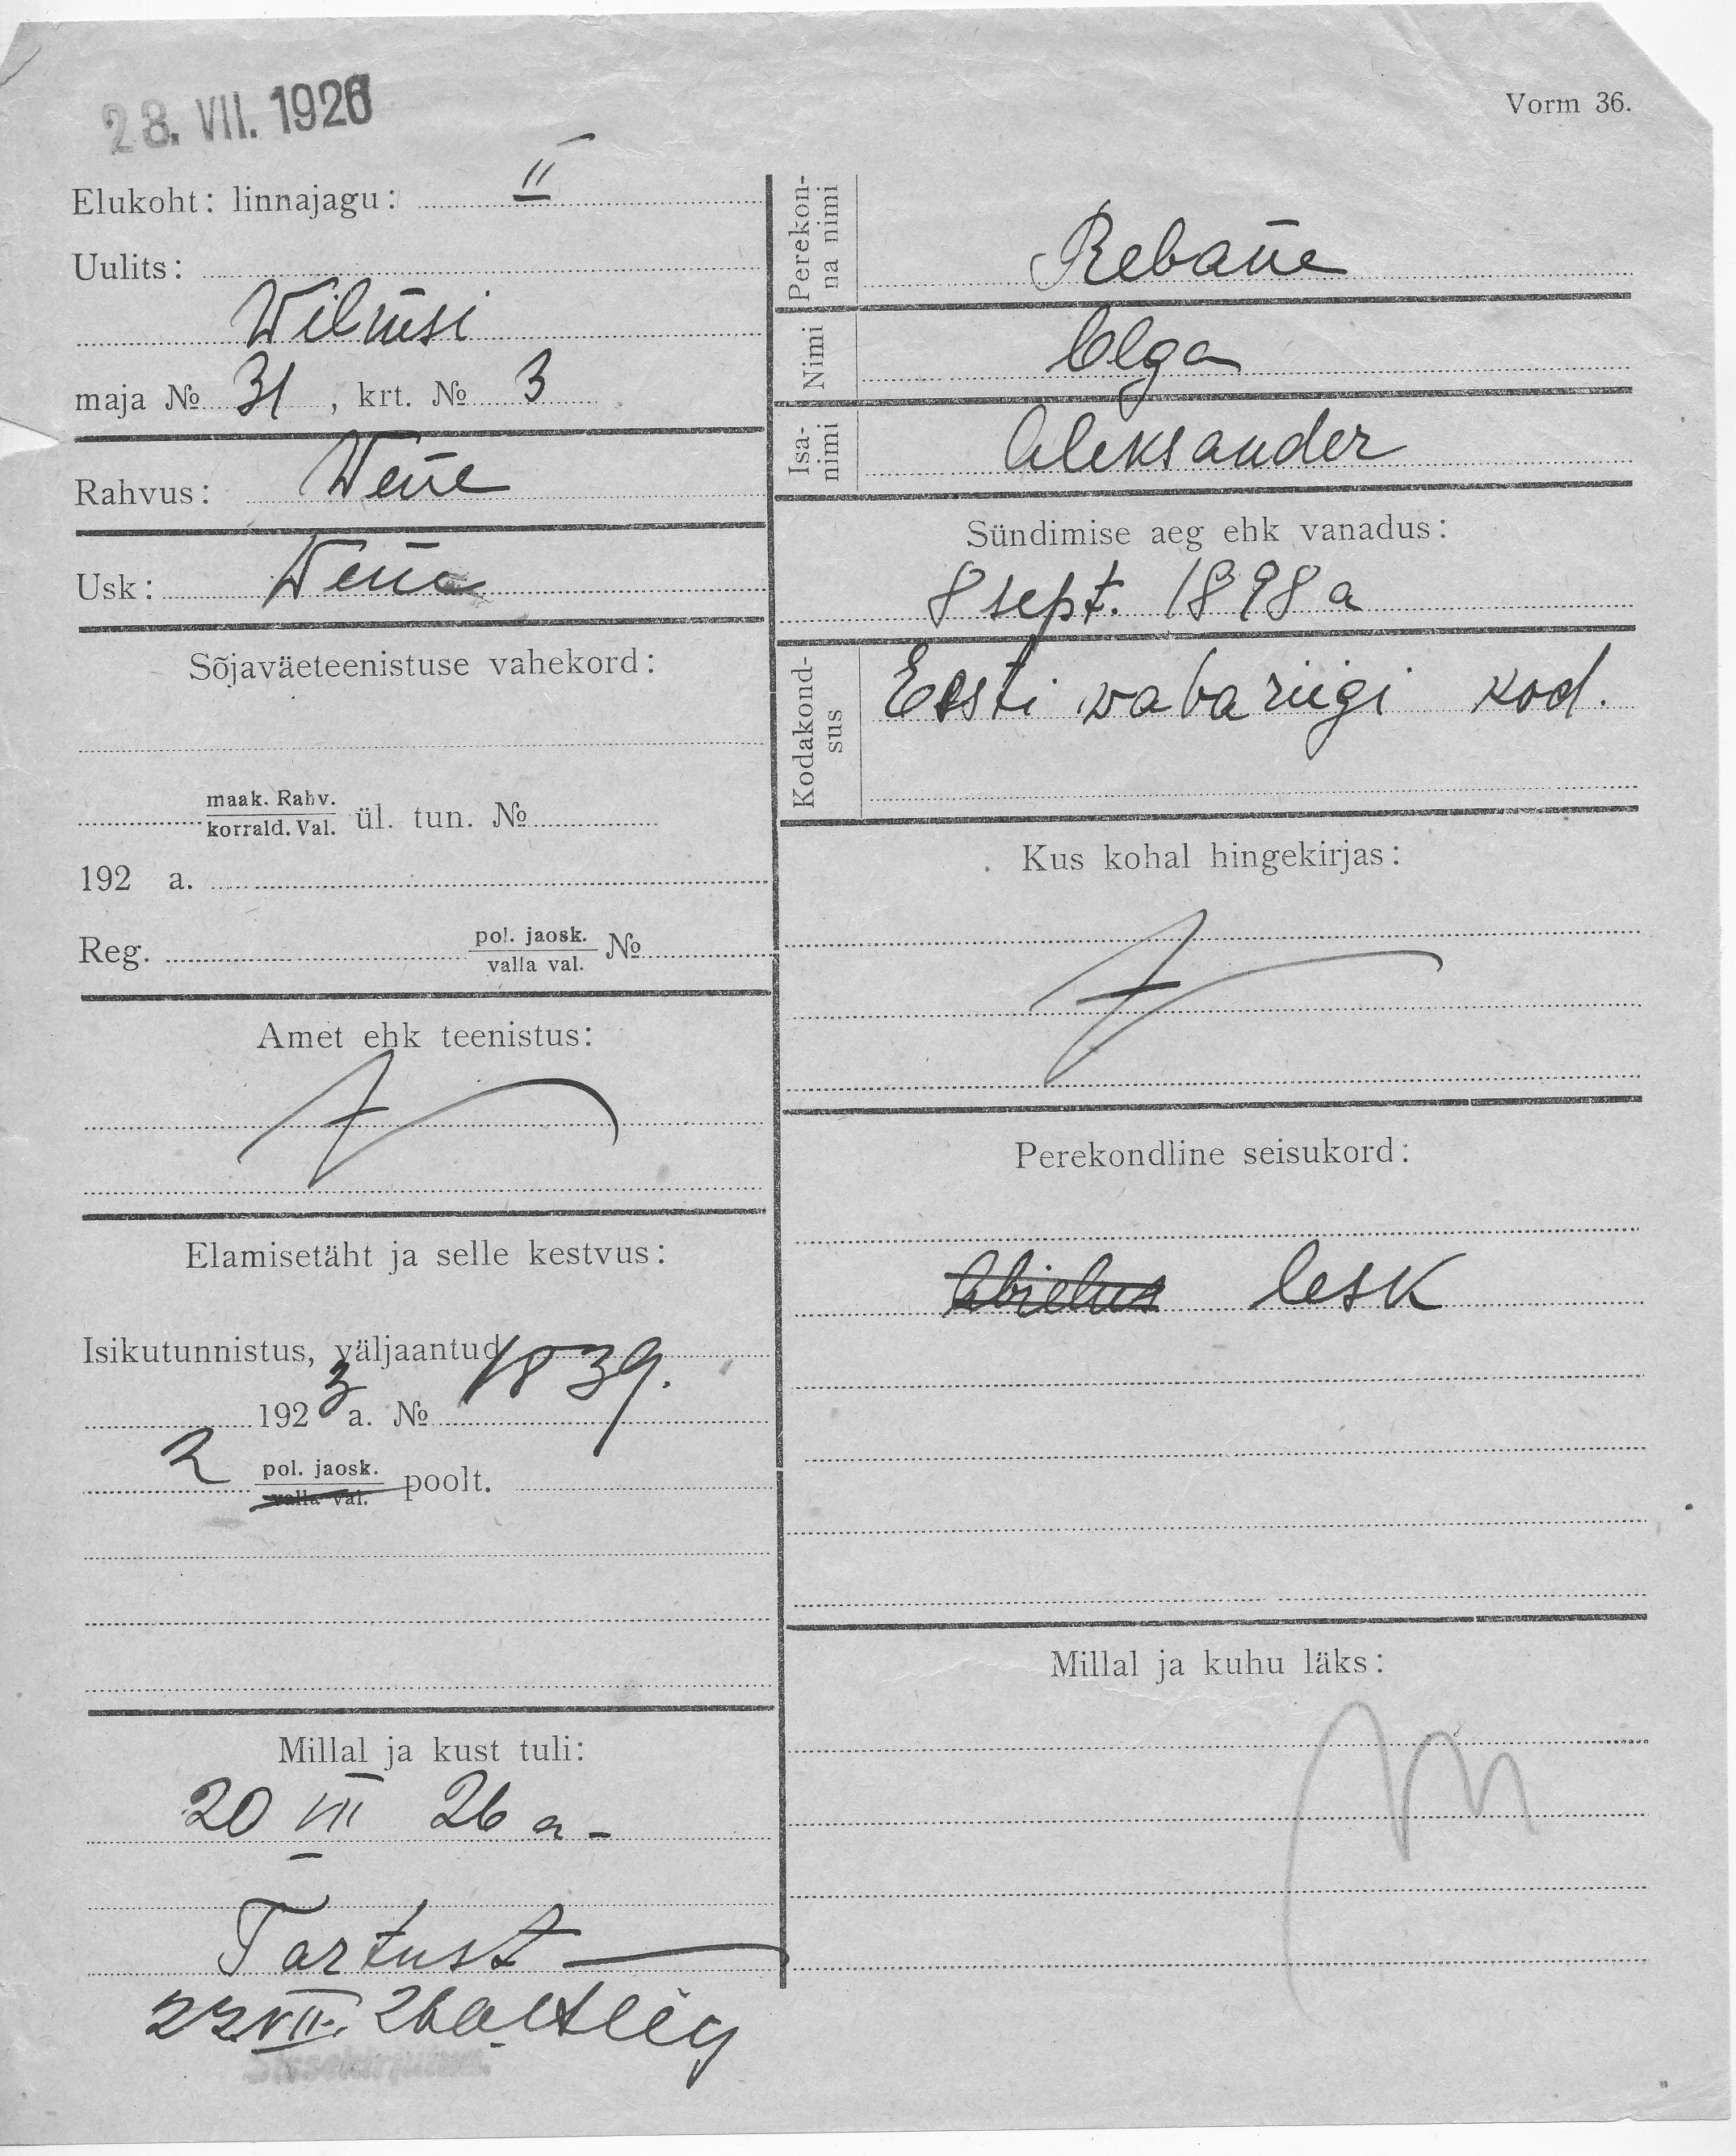 28. VII. 1926
Vorm 36.
Elukoht: linnajagu: II
Uulits:
Wilmsi
maja № 31, krt. № 3
Rahvus: Wene
Usk: Wene
Sõjaväeteenistuse vahekord:
maak. Rahv.
korrald. Val. ül. tun. №
192 a.
Reg. pol. jaosk. №
valla val.
Amet ehk teenistus:
Elamisetäht ja selle kestvus:
Isikutunnistus, väljaantud
1923 a. № 1839.
2 pol. jaosk. poolt.
valla val.
Millal ja kust tuli:
20 VII 26 a -
Tartust —
Perekonna nimi
Rebane
Nimi
Olga
Isanimi
Aleksander
Sündimise aeg ehk vanadus:
8 sept. 1898 a
Kodakondsus
Eesti wabariigi kod.
Kus kohal hingekirjas:
Perekondline seisukord:
Abielus lesk
Millal ja kuhu läks: